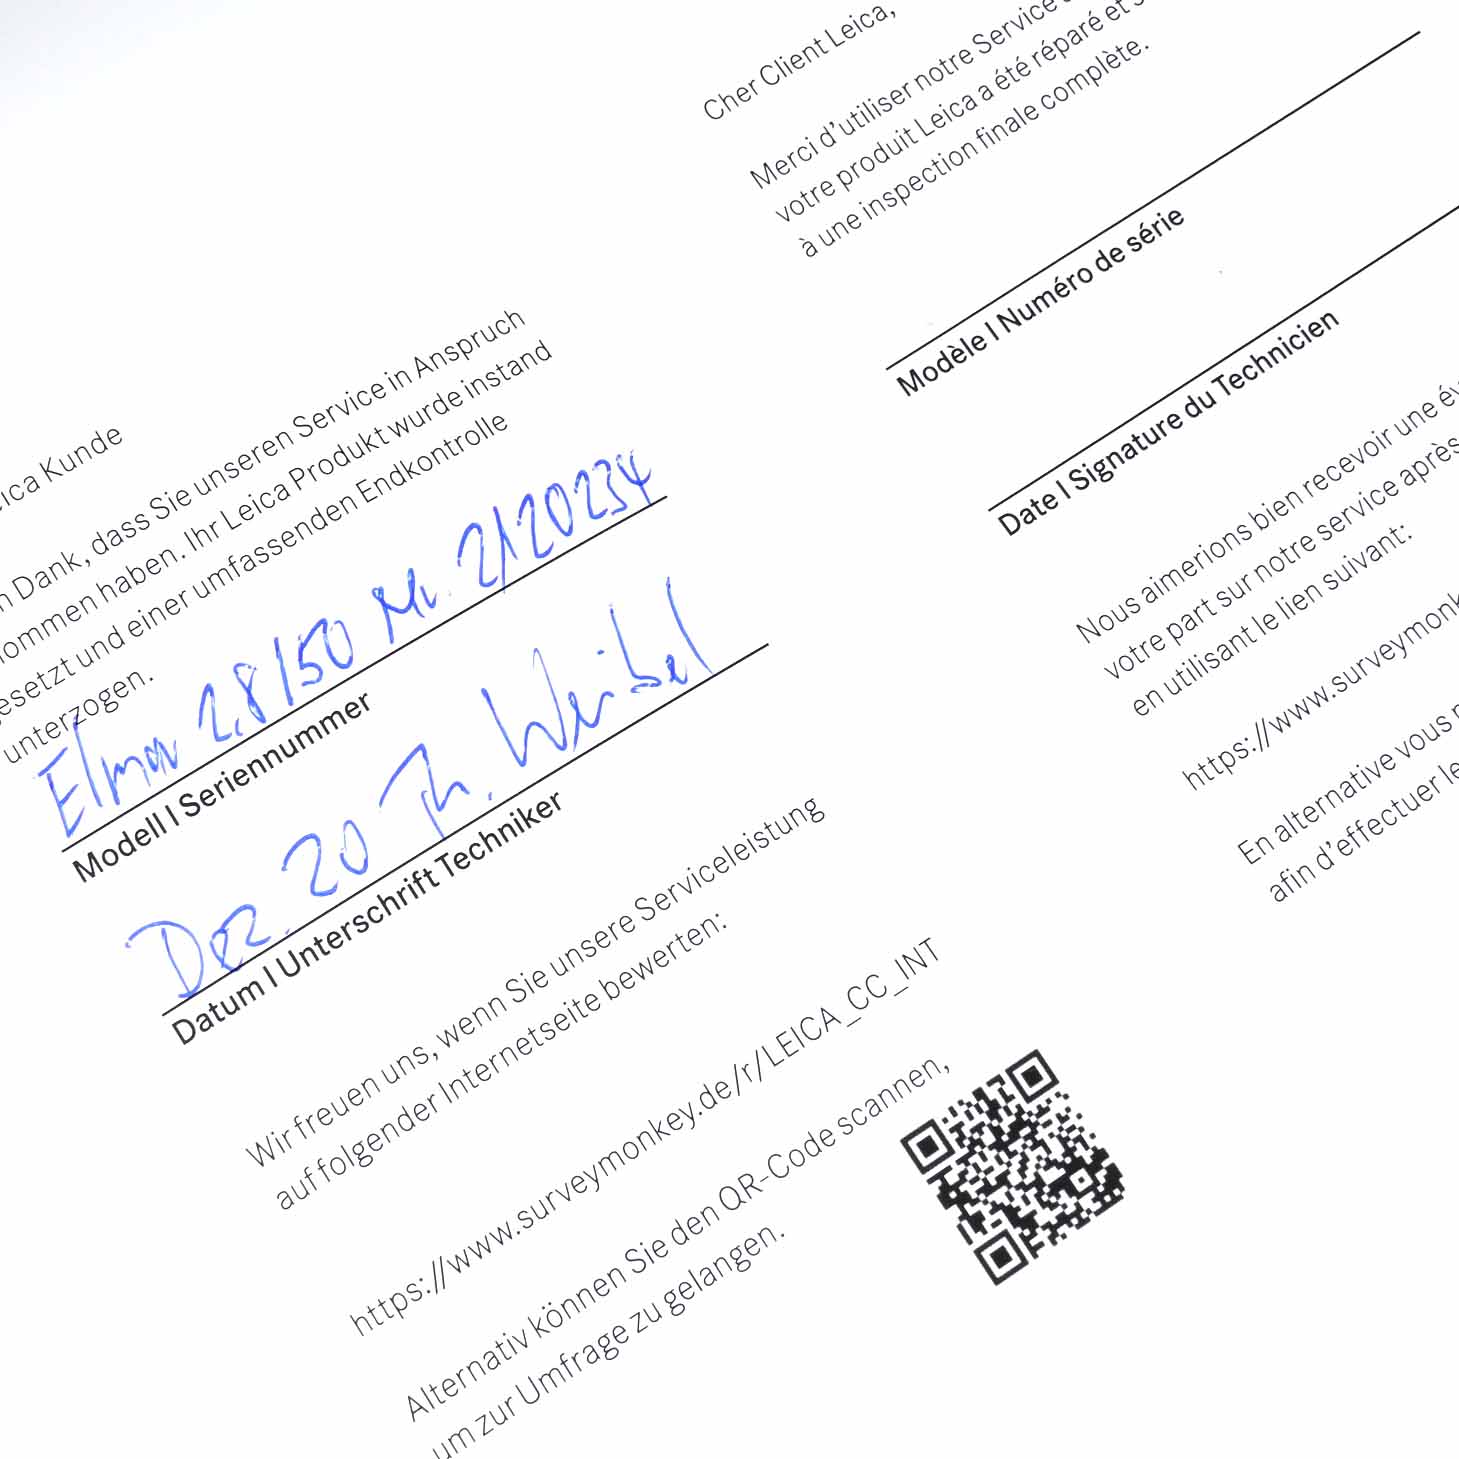 ica Kunde
n Dank, dass Sie unseren Service in Anspruch
ommen haben. Ihr Leica Produkt wurde instand
esetzt und einer umfassenden Endkontrolle
unterzogen.
Elmar 2,8/50 Nr. 2120234
Modell | Seriennummer
Dez. 20 Th. Weibel
Datum | Unterschrift Techniker
Wir freuen uns, wenn Sie unsere Serviceleistung
auf folgender Internetseite bewerten:
https://www.surveymonkey.de/r/LEICA_CC_INT
Alternativ können Sie den QR-Code scannen,
um zur Umfrage zu gelangen.
Cher Client Leica,
Merci d'utiliser notre Service
votre produit Leica a été réparé et s
à une inspection finale complète.
Modèle | Numéro de série
Date | Signature du Technicien
Nous aimerions bien recevoir une év
votre part sur notre service après
en utilisant le lien suivant:
https://www.surveymonk
En alternative vous
afin d'effectuer le